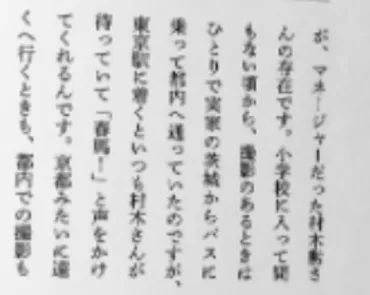 が、マネージャーだった村木さ
んの存在です。小学校に入って間
もない頃から、撮影のあるときは
ひとりで実家の茨城からバスに
乗って都内へ通っていたのですが、
東京駅に着くといつも村木さんが
待っていて「春馬!」と声をかけ
てくれるんです。京都みたいに遠
くへ行くときも、都内での撮影も